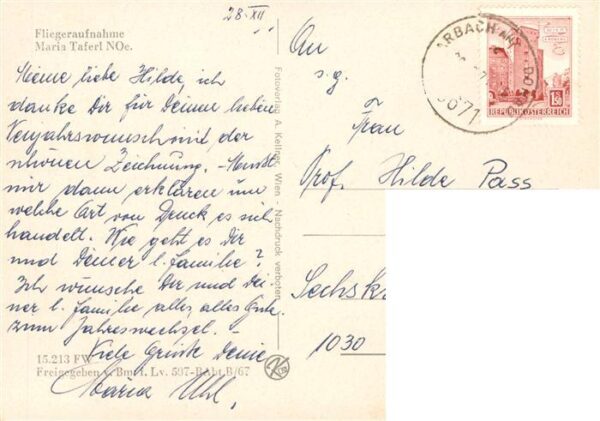 28. XII
Fliegeraufnahme
Maria Taferl NOe.
Meine liebe Hilde, ich
danke Dir für Deinen lieben
Neujahrswunsch mit der
schönen Zeichnung. - Mußt
mir dann erklären um
welche Art von Druck es sich
handelt. Wie geht es Dir
und Deiner l. Familie?
Ich wünsche Dir und Dei-
ner l. Familie alles, alles Gute
zum Jahreswechsel. -
Viele Grüße Deine
Maria Uhl.
15.213 FW
Freigegeben v. BmfL Lv. 597-RAbt.B/67
Fotoverlag A. Kellner, Wien - Nachdruck verboten
An
s. g.
Frau
Prof. Hilde Pass
Sechskr
1030
ARBACH
3071
REPUBLIK ÖSTERREICH
1.50